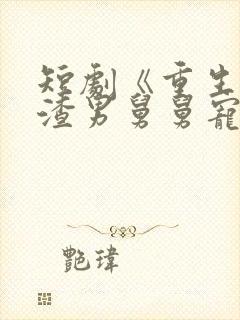 短劇《重生
渣男舅舅寵
艷瑋